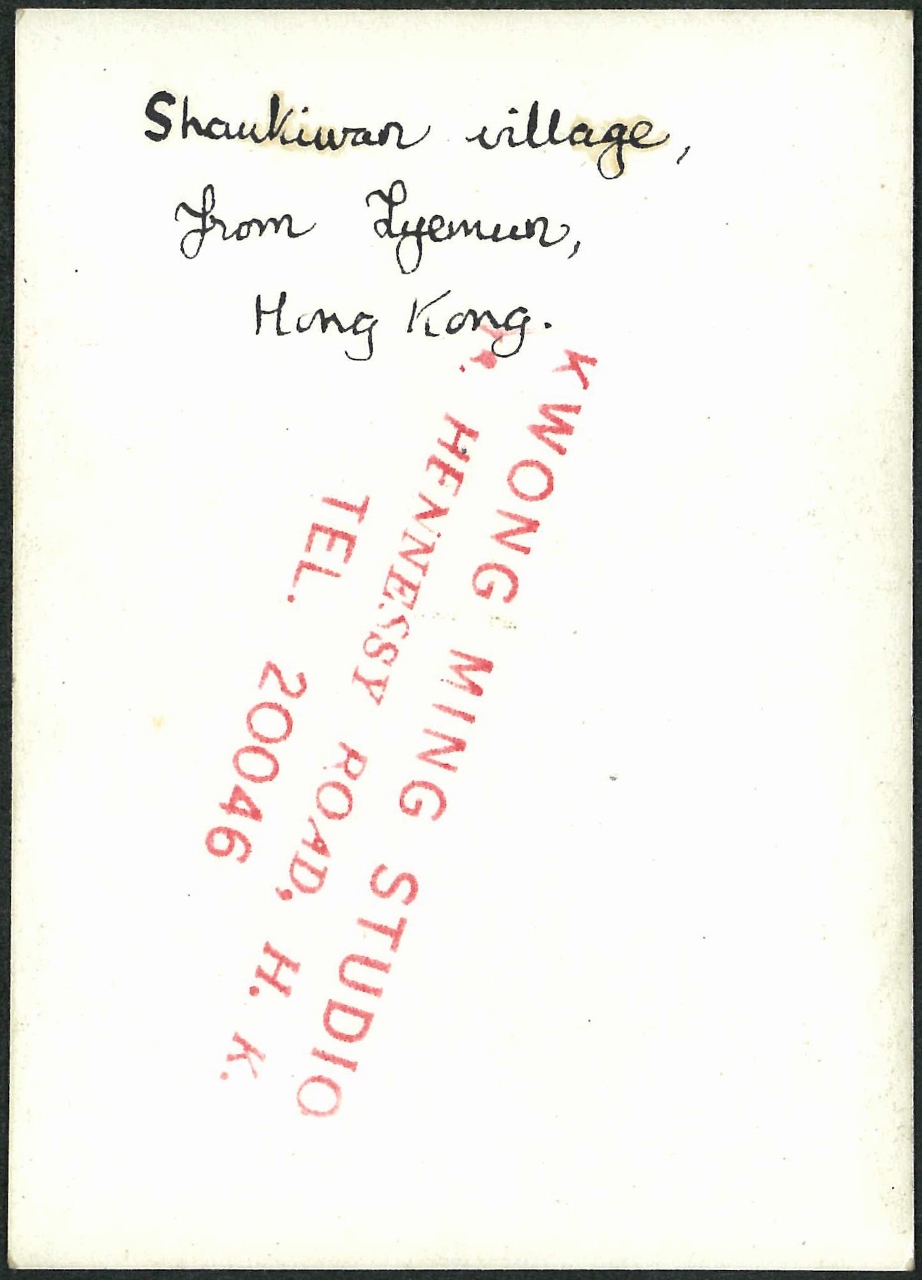 Shaukiwan village,
from Lyemun,
Hong Kong.
KWONG MING STUDIO
HENNESSY ROAD, H. K.
TEL. 20046